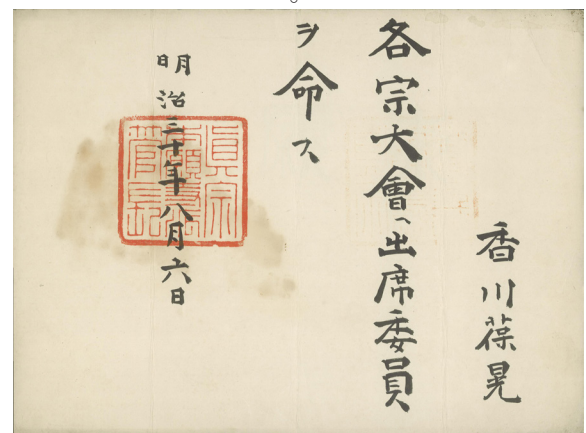 香川葆晃
各宗大會ヘ出席委員
ヲ命ス
明治三十年八月六日